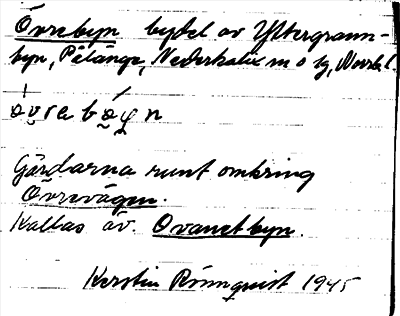 Övrebyn bydel av Yttergranns-
byn, Pålänge, Nederkalix m o tg, Norrb l.
övrabyn
Gårdarna runt omkring
Övrevägen.
Kallas äv. Ovanetbyn.
Kerstin Rönnquist 1945